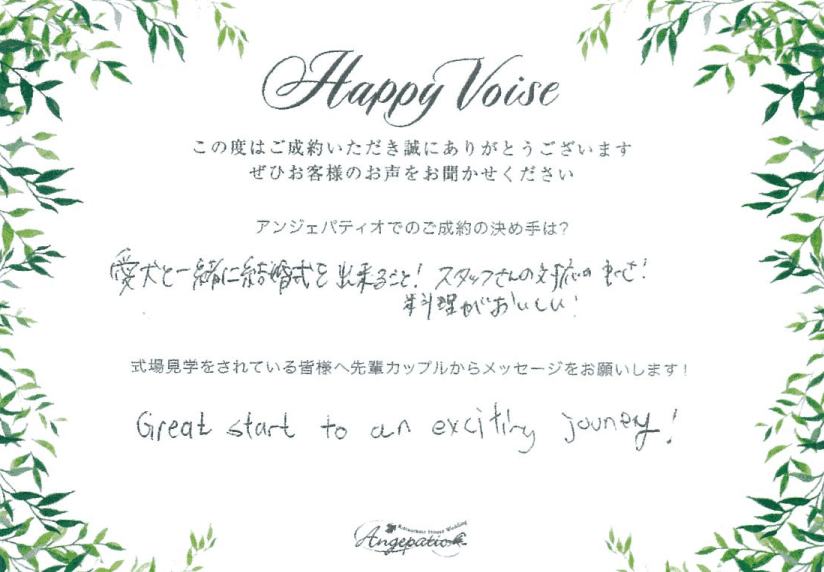 Happy Voise
この度はご成約いただき誠にありがとうございます
ぜひお客様のお声をお聞かせください
アンジェパティオでのご成約の決め手は?
愛犬と一緒に結婚式を出来ること! スタッフさんの対応の
料理がおいしい!
式場見学をされている皆様へ先輩カップルからメッセージをお願いします!
Great start to an exciting jouney!
Angepatio